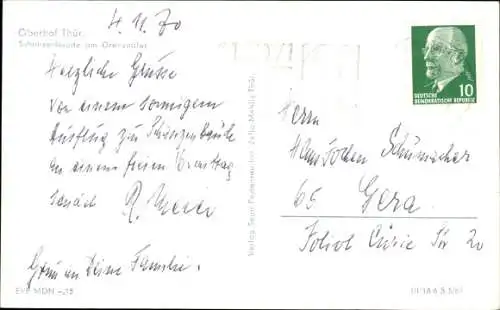 4.11.70
Oberhof Thür.
Schanzenbaude am Grenzadler
Herzliche Grüsse
von einem sonnigen
Ausflug zur Schanzenbaude
an einem freien Dienstag
sendet R. Meier
Gruss an Deine Familie.
EVP MDN -,15
Verlag Bruno
10
DEUTSCHE
DEMOKRATISCHE REPUBLIK
Herrn
Hans Jochen Schumacher
65 Gera
Joliot Curie Str 20